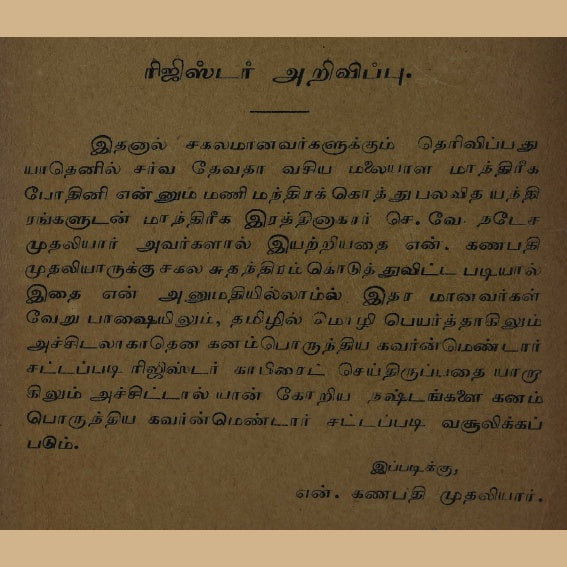 ரிஜிஸ்டர் அறிவிப்பு.
இதனால் சகலமானவர்களுக்கும் தெரிவிப்பது
யாதெனில் சர்வ தேவதா வசிய மலையாள மாந்திரீக
போதினி என்னும் மணி மந்திரக்கொத்து பலவித யந்தி
ரங்களுடன் மாந்திரீக இரத்தினாகரர் செ. வே. நடேச
முதலியார் அவர்களால் இயற்றியதை என். கணபதி
முதலியாருக்கு சகல சுதந்திரம் கொடுத்துவிட்ட படியால்
இதை என் அனுமதியில்லாமல் இதர மானவர்கள்
வேறு பாஷையிலும், தமிழில் மொழி பெயர்த்தாகிலும்
அச்சிடலாகாதென கனம்பொருந்திய கவர்ன்மெண்டார்
சட்டப்படி ரிஜிஸ்டர் காபிரைட் செய்திருப்பதை யாரு
கிலும் அச்சிட்டால் யான் கோறிய நஷ்டங்களை கனம்
பொருந்திய கவர்ன்மெண்டார் சட்டப்படி வசூலிக்கப்
படும்.
இப்படிக்கு,
என். கணபதி முதலியார்.